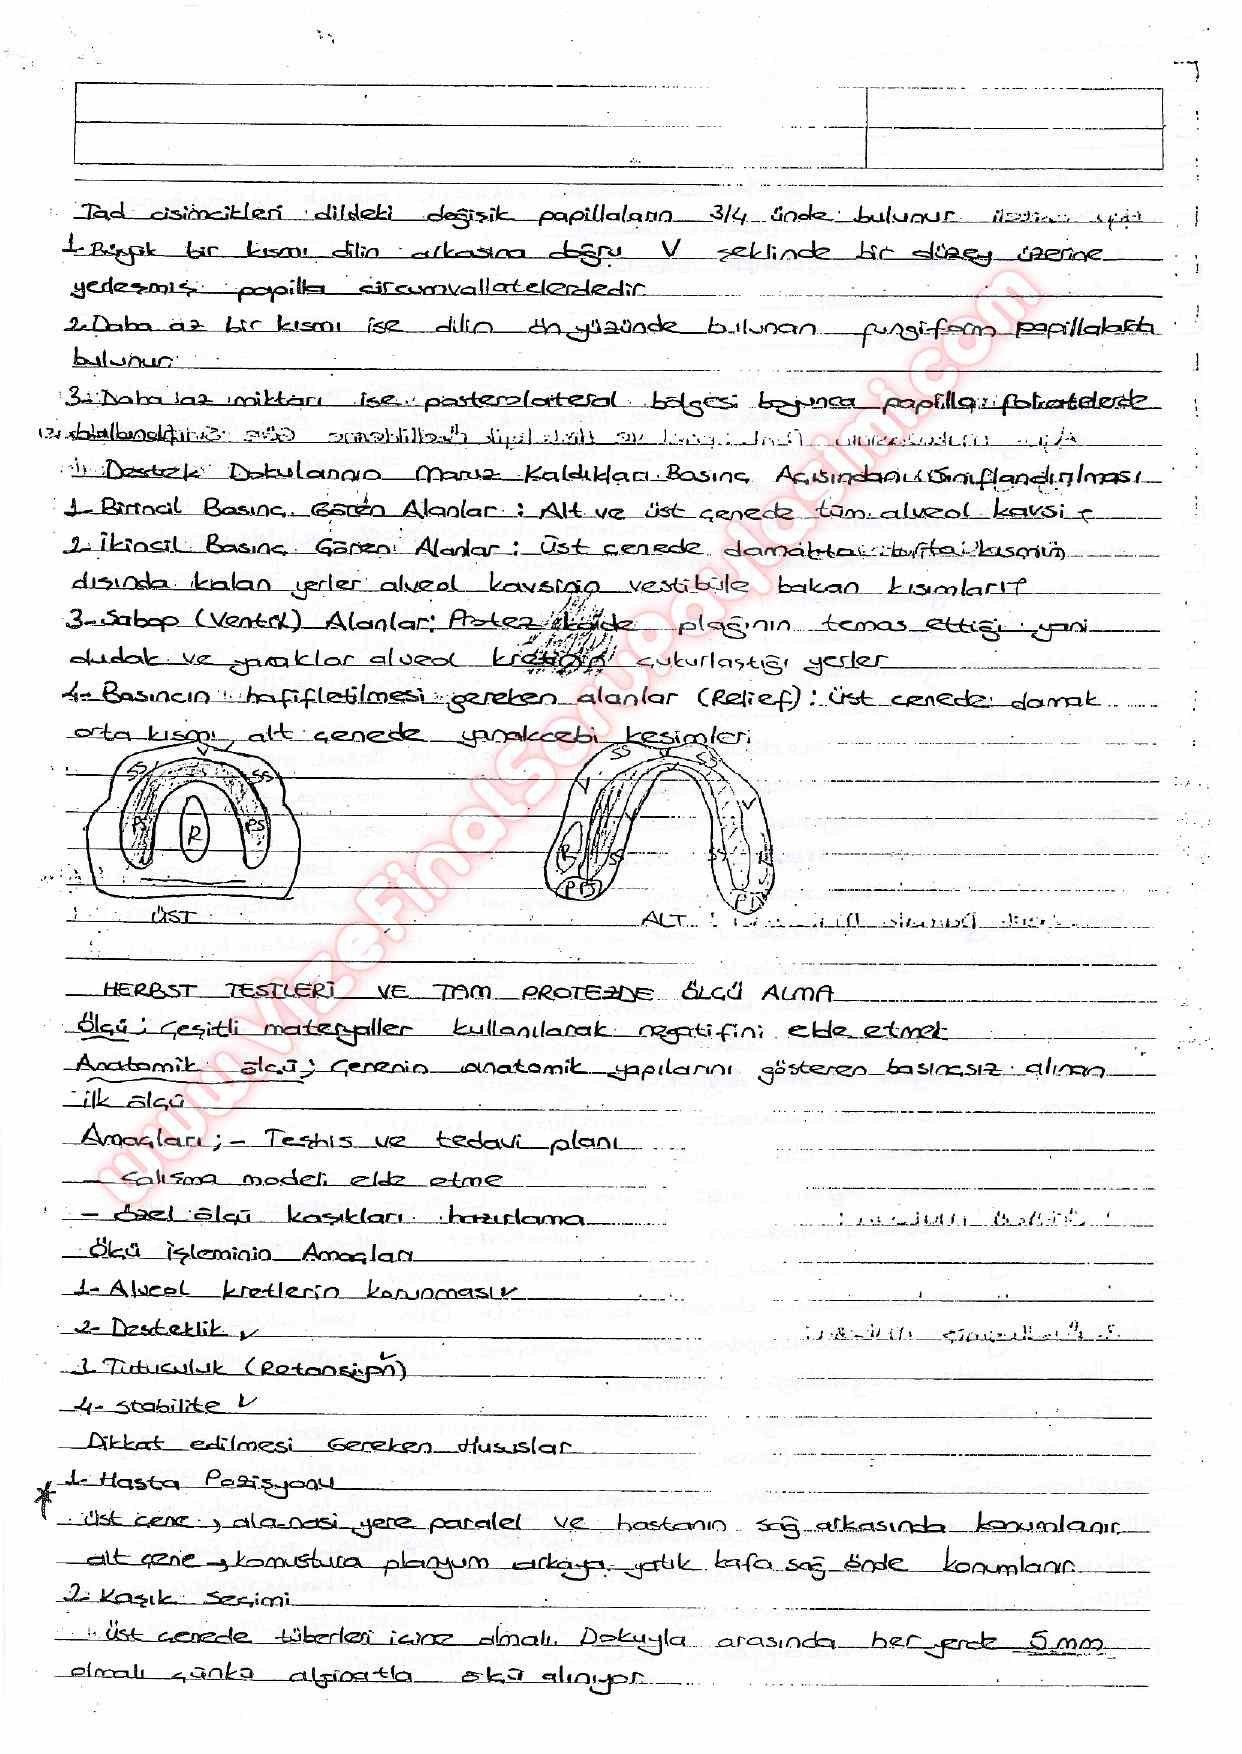 Tad cisimcikleri dildeki değişik papillaların 3/4 ünde bulunur
1- Büyük bir kısmı dilin arkasına doğru V şeklinde bir düzey üzerine
yerleşmiş papilla circumvallatelerdedir
2. Daha az bir kısmı ise dilin ön yüzünde bulunan fungiform papillalarda
bulunur
3- Daha az miktarı ise posterolateral bölgesi boyunca papilla foliatelerde
Destek Dokularının Maruz Kaldıkları Basınç Açısından Sınıflandırılması
1- Birincil Basınç Gören Alanlar : Alt ve üst çenede tam alveol kavsi
2- İkincil Basınç Gören Alanlar : Üst çenede damakta orta kısmın
dışında kalan yerler alveol kavsinin vestibüle bakan kısımları
3- Sabop (Ventil) Alanlar: Protez plağının temas ettiği yani
dudak ve yanaklar alveol çukurlaştığı yerler
4- Basıncın hafifletilmesi gereken alanlar (Relief) : üst çenede damak
orta kısmı, alt çenede yanakcebi kesimleri
SS V SS PS R PS
SS V SS V V R SS SS PD PD
ÜST ALT
HERBST TESTLERİ VE TAM PROTEZDE ÖLÇÜ ALMA
Ölçü ; Çeşitli materyaller kullanılarak negatifini elde etmek
Anatomik ölçü ; Çenenin anatomik yapılarını gösteren basınçsız alınan
ilk ölçü
Amaçları ; - Teşhis ve tedavi planı
- Çalışma modeli elde etme
- özel ölçü kaşıkları hazırlama
Ölçü İşleminin Amaçları
1- Alveol kretlerin korunması ✓
2- Desteklik ✓
3. Tutuculuk (Retansiyon) ✓
4- stabilite ✓
Dikkat edilmesi Gereken Hususlar
* 1- Hasta Pozisyonu
üst çene , ala-nasi yere paralel ve hastanın sağ arkasında konumlanır
alt çene , komustura planyum arkaya yatık kafa sağ önde konumlanır
2. Kaşık Seçimi
üst çenede tüberleri içine almalı. Dokuyla arasında her yerde 5 mm
olmalı çünkü alginatla ölçü alınıyor.
www.VizeFinalSoruPaylasimi.com